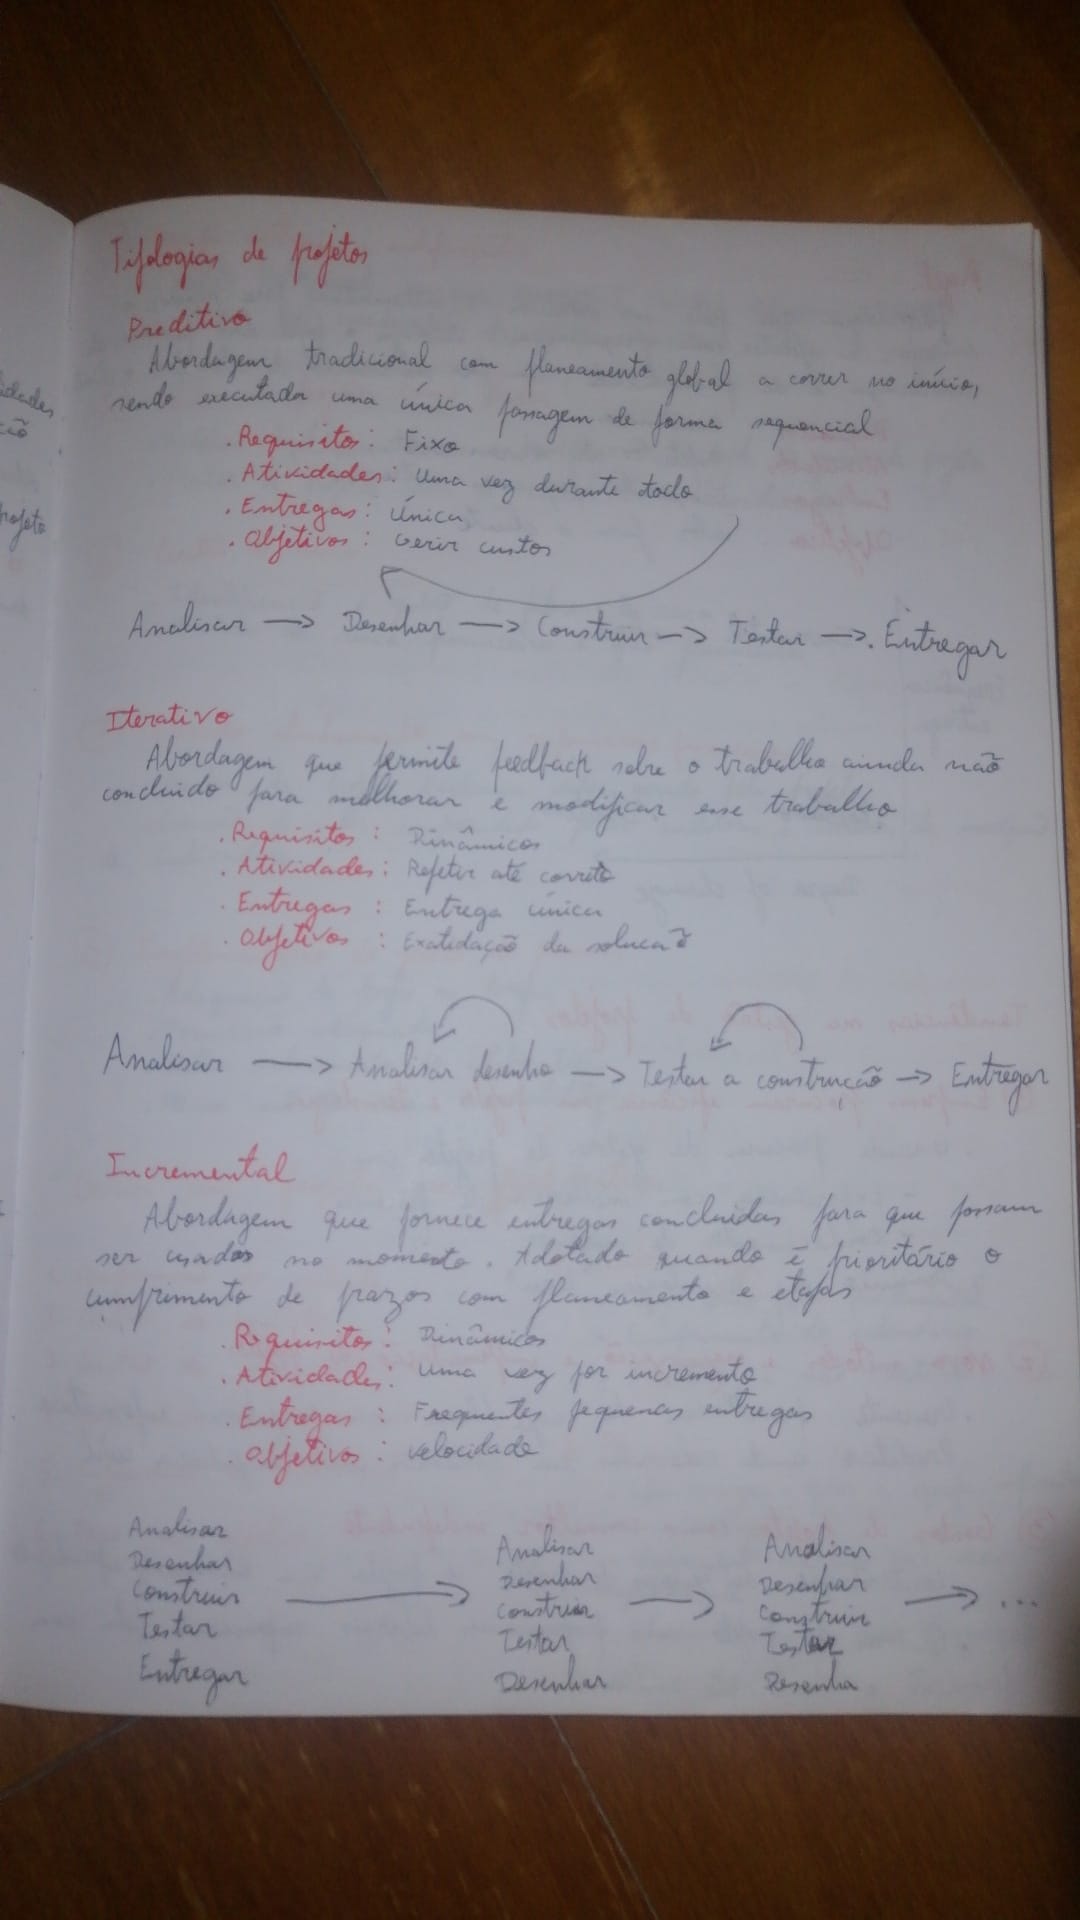 Tipologias de projetos
Preditivo
Abordagem tradicional com planeamento global a correr no início,
sendo executada uma única passagem de forma sequencial
. Requisitos : Fixo
. Atividades : Uma vez durante todo
. Entregas : Única
. Objetivos : Gerir custos
Analisar → Desenhar → Construir → Testar → . Entregar
Iterativo
Abordagem que permite feedback sobre o trabalho ainda não
concluido para melhorar e modificar esse trabalho
. Requisitos : Dinâmicos
. Atividades : Repetir até correto
. Entregas : Entrega única
. Objetivos : Exatidação da solucaõ
Analisar → Analisar desenho → Testar a construção → Entregar
Incremental
Abordagem que fornece entregas concluidas para que possam
ser usados no momento. Adotado quando é prioritário o
cumprimento de prazos com planeamento e etapas
. Requisitos : Dinâmicos
. Atividades : Uma vez por incremento
. Entregas : Frequentes pequenas entregas
. Objetivos : velocidade
Analisar
Desenhar
Construir
Testar
Entregar
→
Analisar
Desenhar
Construir
Testar
Desenhar
→
Analisar
Desenhar
Construir
Testar
Desenha
→ ...
idades
ção
projeto